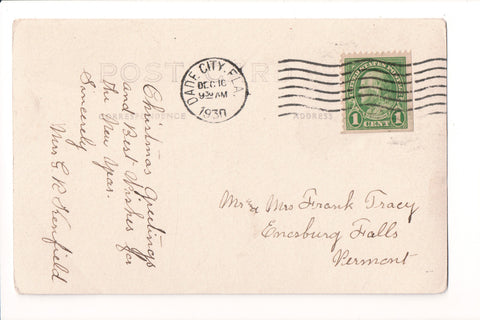 POST CARD
DADE CITY, FLA.
DEC 16
9 30 AM
1930
UNITED STATES POSTAGE
1 CENT 1
CORRESPONDENCE
ADDRESS
Christmas Greetings
and Best Wishes for
the New Year.
Sincerely
Mrs G R
Mr & Mrs Frank Tracy
Enosburg Falls
Vermont